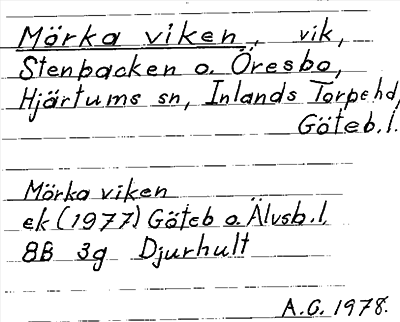 Mörka viken, vik,
Stenbacken o. Öresbo,
Hjärtums sn, Inlands Torpe hd,
Göteb.l.
Mörka viken
ek (1977) Göteb o Älvsb.l,
8B 3g Djurhult
A.G. 1978.